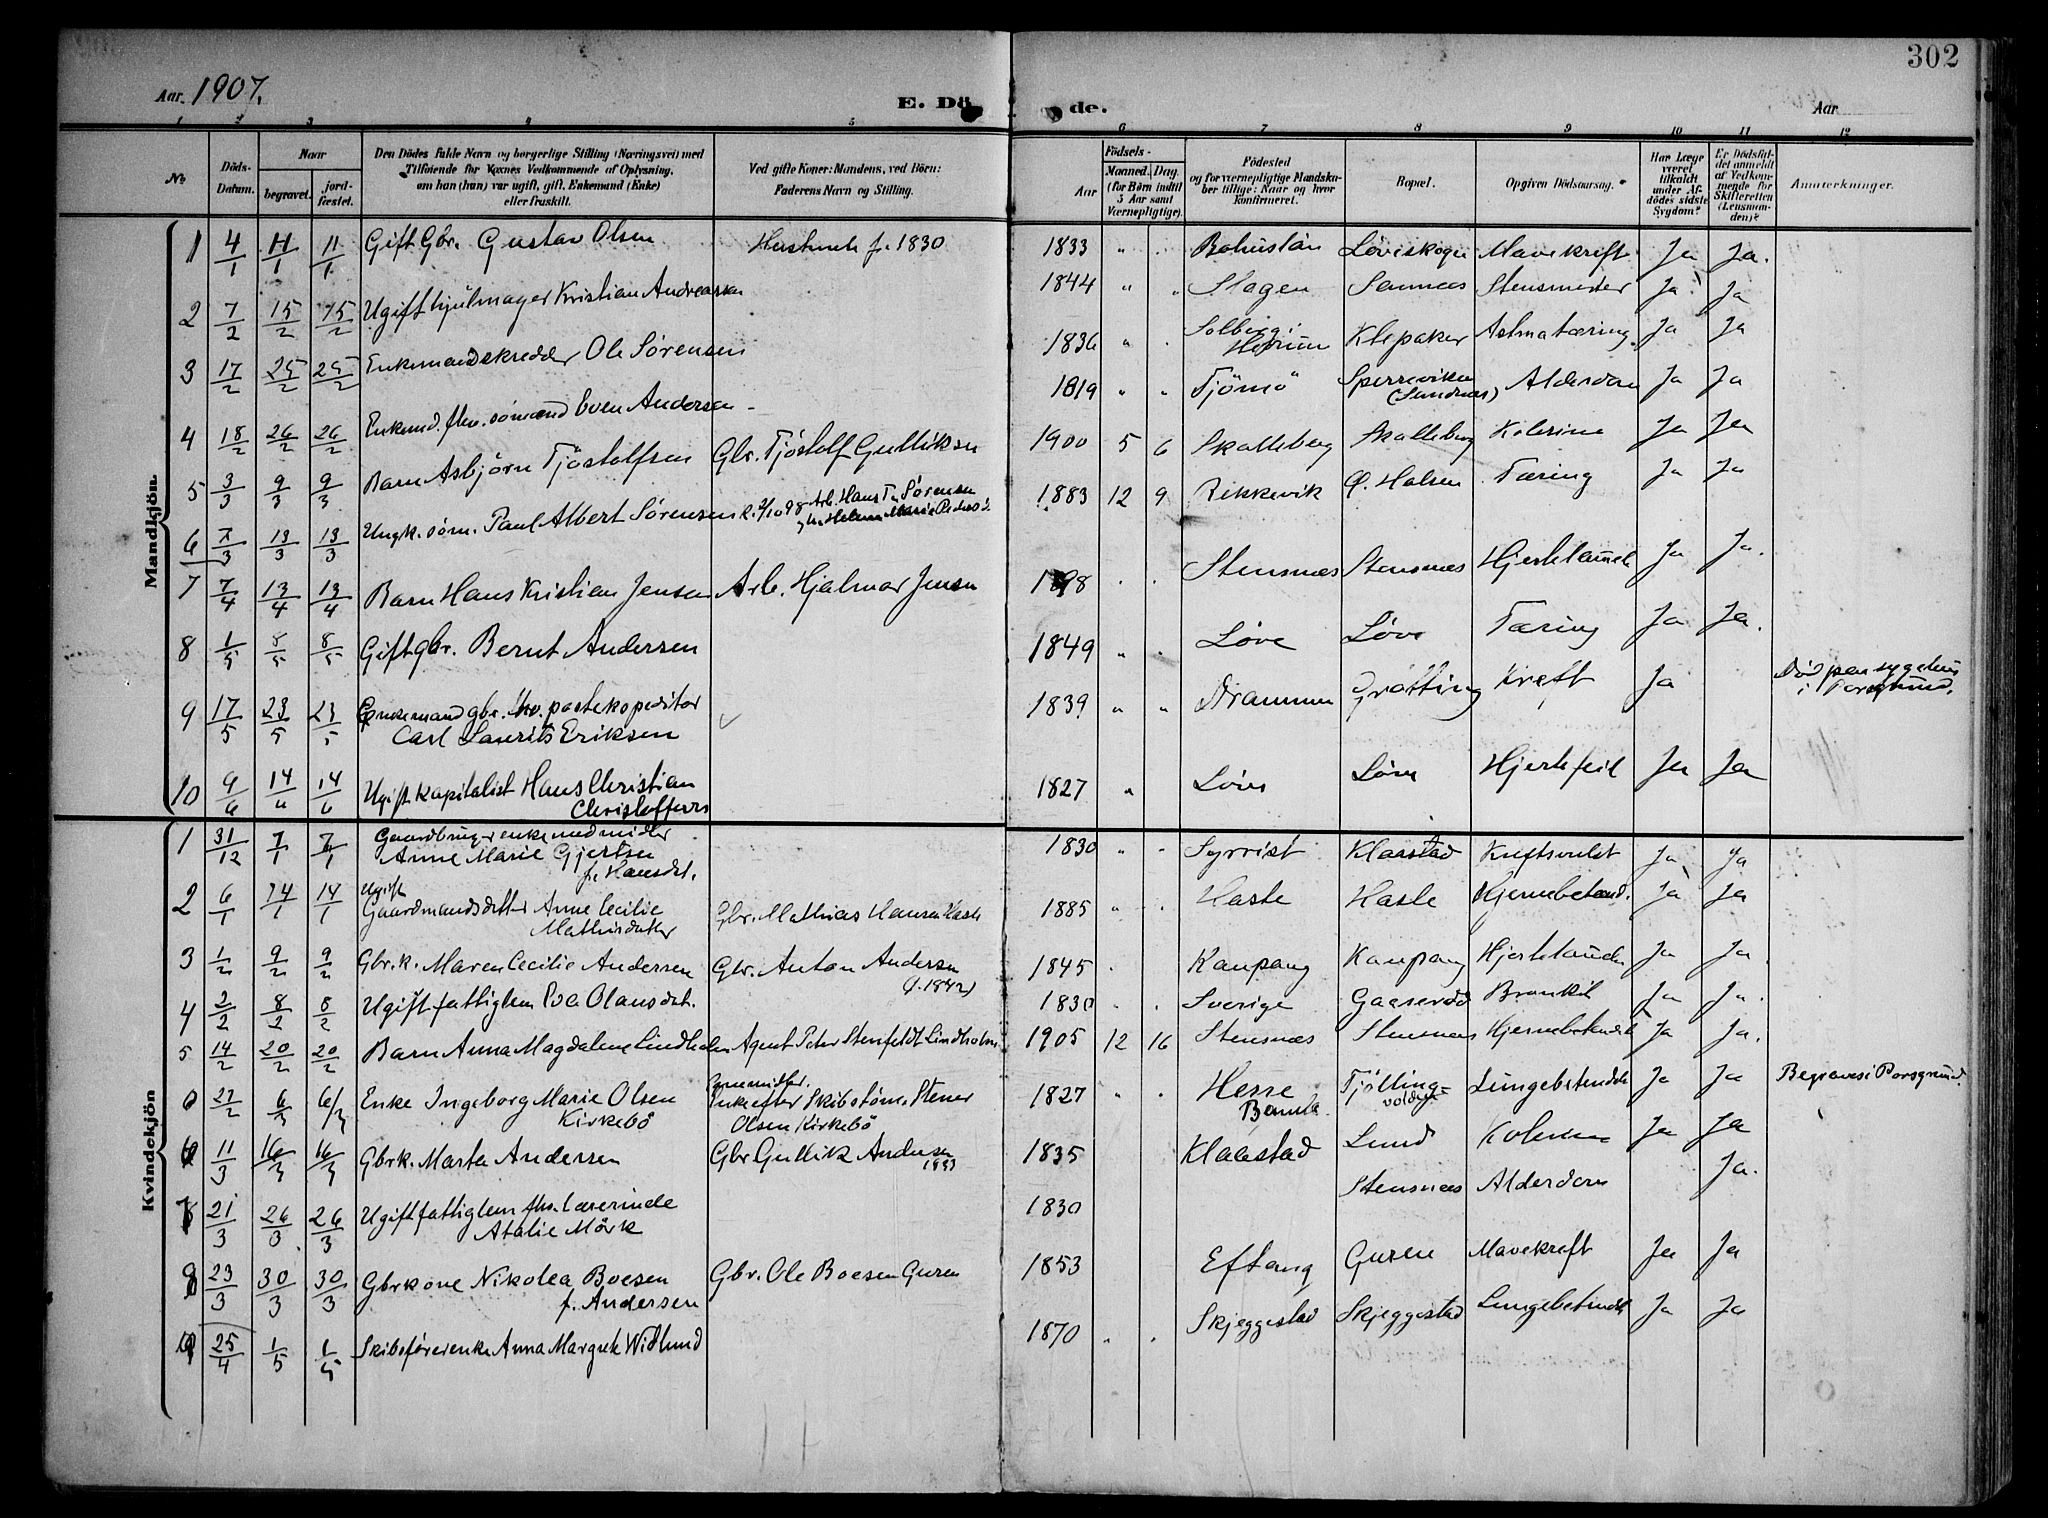 302
Aar. 1907.
E. Döde.
Aar
1 2 3 4 5 6 7 8 9 10 11 12
No
Döds-Datum.
Naar
begravet.
jordfæstet.
Den Dödes fulde Navn og borgerlige Stilling (Næringsvei) med
Tilföiende for Voxnes Vedkommende af Oplysning,
om han (hun) var ugift, gift, Enkemand (Enke)
eller fraskilt.
Ved gifte Koner: Mandens, ved Börn:
Faderens Navn og Stilling.
Födsels-
Aar
Maaned. Dag.
(for Börn indtil
5 Aar samt
Værnepligtige).
Födested
og for værnepligtige Mandskaber tillige: Naar og hvor
konfirmeret.
Bopæl.
Opgiven Dödsaarsag.
Har Læge
været
tilkaldt
under Afdödes sidste
Sygdom?
Er Dödsfaldet anmeldt
af Vedkommende for
Skifteretten
(Lensmanden)?
Anmærkninger.
Mandkjön.
1 4/1 11/1 11/1 Gift Gbr. Gustav Olsen f. 1830 1833 " Bahuslän Løveskogen Mavekreft Ja Ja.
2 7/2 15/2 15/2 Ugift hjulmager Kristian Andreassen 1844 " " Slagen Sannes Ja Ja
3 17/2 25/2 25/2 Enkemand skredder Ole Sørensen 1836 " Solberg i Hedrum Klepaker Astma tæring. Ja Ja
4 18/2 26/2 26/2 Enkemd. fhv. sømand Even Andersen 1819 " " Tjömö Sperreviken (Sundnæs) Alderdom Ja Ja
5 3/3 9/3 9/3 Barn Asbjörn Tjöstolfsen Gbr. Tjöstolf Gulliksen 1900 5 6 Skalleberg Skalleberg Kolerine Ja Ja
6 7/3 13/3 13/3 Ungk. søm. Paul Albert Sørensen Arb. Hans Sørensen 1883 12 9 Rekkevik Ø. Halsen Tæring Ja Ja
7 7/4 13/4 13/4 Barn Hans Kristian Jensen Arb. Hjalmar Jensen Stensnæs Stensnæs Ja Ja.
8 1/5 8/5 8/5 Gift gbr. Bernt Andersen 1849 " Løve Løve Tæring Ja Ja.
9 17/5 23/5 23/5 Enkemand gbr. fhv. postekspeditør
Carl Laurits Eriksen 1839 " " Drammen Grøtting Kreft Ja Död paa sygehus
i Porsgrund.
10 9/6 14/6 14/6 Ugift kapitalist Hans Christian
Christoffers 1827 " Løve Løve Hjertefeil Ja Ja
Kvindekjön
1 31/12 7/1 7/1 Gaardbruger enke med midler
Anne Marie Gjertsen
f. Hansdt. 1830 " Syrrist Klaastad Kreftsvulst Ja Ja
2 6/1 14/1 14/1 Ugift
Gaardmandsdatter Anne Cecilie
Mathisdatter Gbr. Mathias Hansen Hasle 1885 " Hasle Hasle Hjernebetænd. Ja Ja
3 1/2 9/2 9/2 Gbr.k. Maren Cecilie Andersen Gbr. Anton Andersen
(f. 1842) 1845 Kaupang Kaupang Ja Ja.
4 2/2 8/2 8/2 Ugift fattiglem Eva Olausdt. 1830 Sverige Gaaserød Bronkit Ja Ja.
5 14/2 20/2 20/2 Barn Anna Magdalene Lindholm Agent Peter Stenfeldt Lindholm 1905 12 16 Stensnæs Stensnæs Hjernebetændel Ja Ja.
6 27/2 6/3 6/3 Enke Ingeborg Marie Olsen
Kirkebö Enke efter Skibstøm. Stener
Olsen Kirkebö 1827 " Herre
Bamle Tjølling-
vollen Lungebetændel Ja Ja Begraves i Porsgrund.
11/3 16/3 16/3 Gbrk. Marte Andersen Gbr Gullik Andersen
1833 1835 Klaastad Lund Ja Ja
21/3 26/3 26/3 Ugift fattiglem fhv. Lærerinde
Atalie Mörk 1830 Stensnæs Alderdom Ja.
23/3 30/3 30/3 Gbrkone Nikolea Boesen
f. Andersen Gbr. Ole Boesen Guren 1853 Eftang Guren Mavekreft Ja Ja
25/4 1/5 1/5 Skibsførerenke Anna Margrete Widlund 1870 Skjeggestad Skjeggestad Lungebetændel Ja Ja